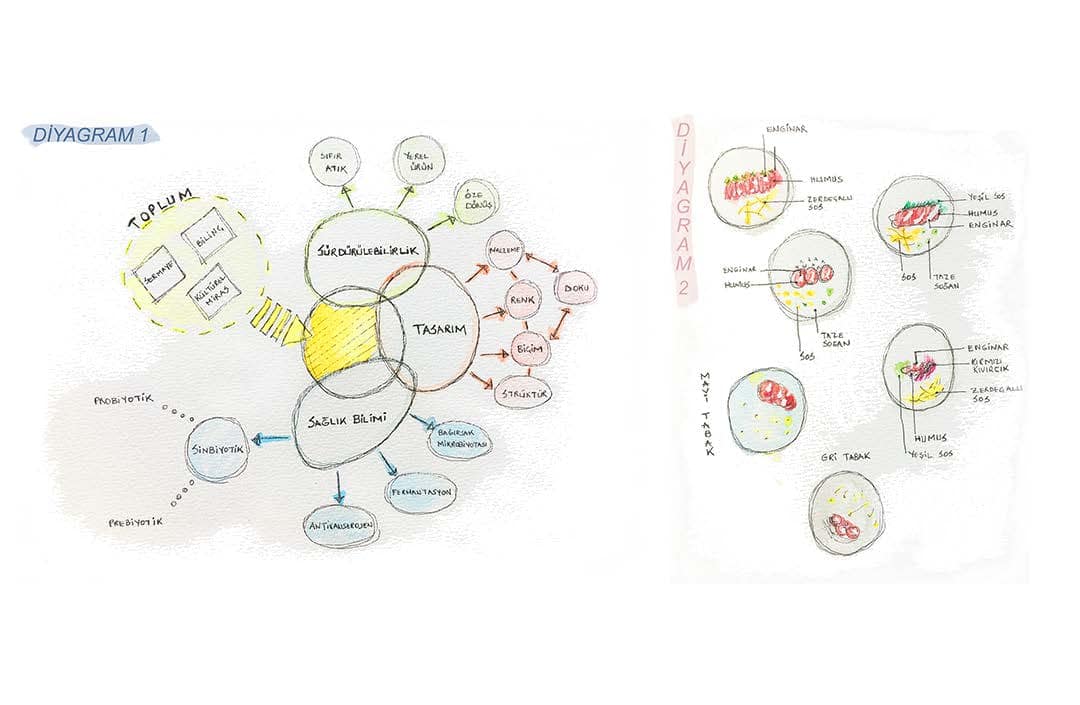 DİYAGRAM 1
TOPLUM
SERMAYE
BİLİNÇ
KÜLTÜREL
MİRAS
SIFIR
ATIK
YEREL
ÜRÜN
ÖZE
DÖNÜŞ
SÜRDÜRÜLEBİLİRLİK
TASARIM
MALZEME
DOKU
RENK
BİÇİM
STRÜKTÜR
SAĞLIK BİLİMİ
BAĞIRSAK
MİKROBİYOTASI
FERMANTASYON
ANTİKANSEROJEN
SİNBİYOTİK
PROBİYOTİK
PREBİYOTİK
DİYAGRAM 2
ENGINAR
HUMUS
ZERDEÇALLI
SOS
YEŞİL SOS
HUMUS
ENGINAR
SOS
TAZE
SOĞAN
ENGINAR
HUMUS
SOS
TAZE
SOĞAN
ENGINAR
KIRMIZI
KIVIRCIK
ZERDEÇALLI
SOS
HUMUS
YEŞİL SOS
MAVİ TABAK
GRİ TABAK